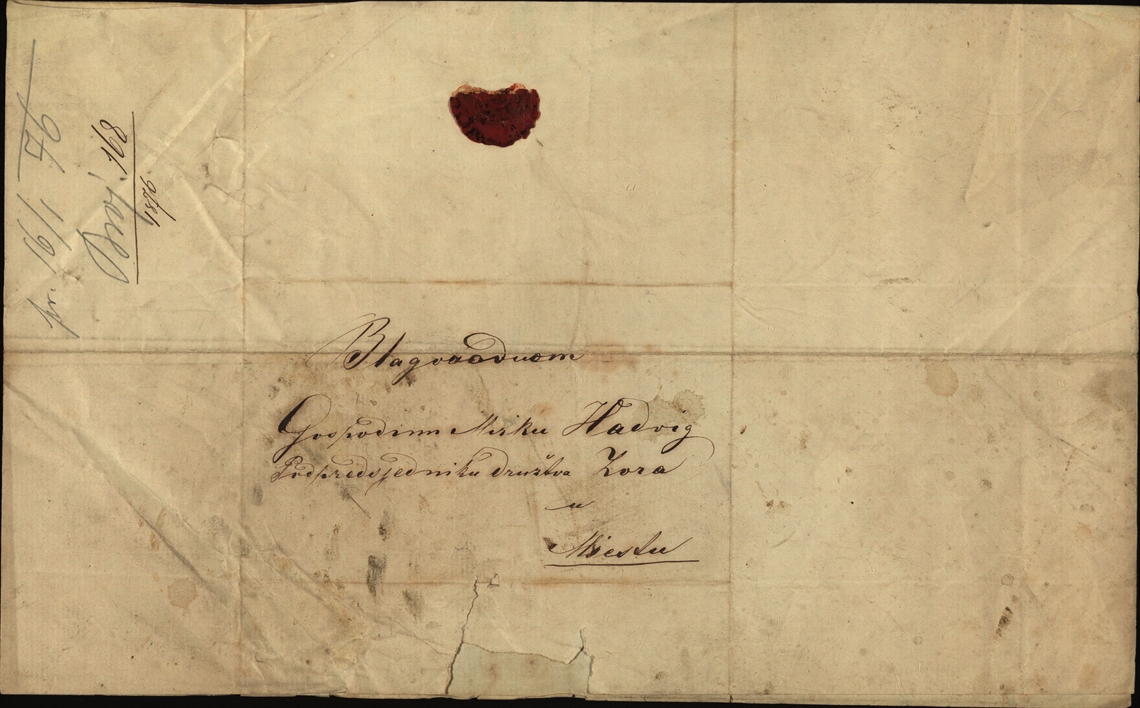 pr. 16/1 76
Broj: 168
1876.
Blagorodnom
Gospodinu Mirku Hadvig
Podpredsjedniku družtva Zora
u
Miestu